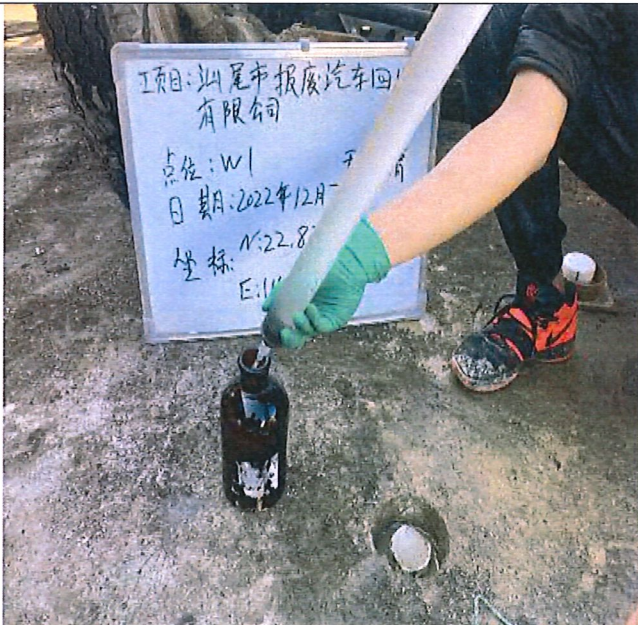 项目:汕尾市报废汽车回
有限公司
点位:W1
日期:2022年12月
坐标:N:22.8
E:11